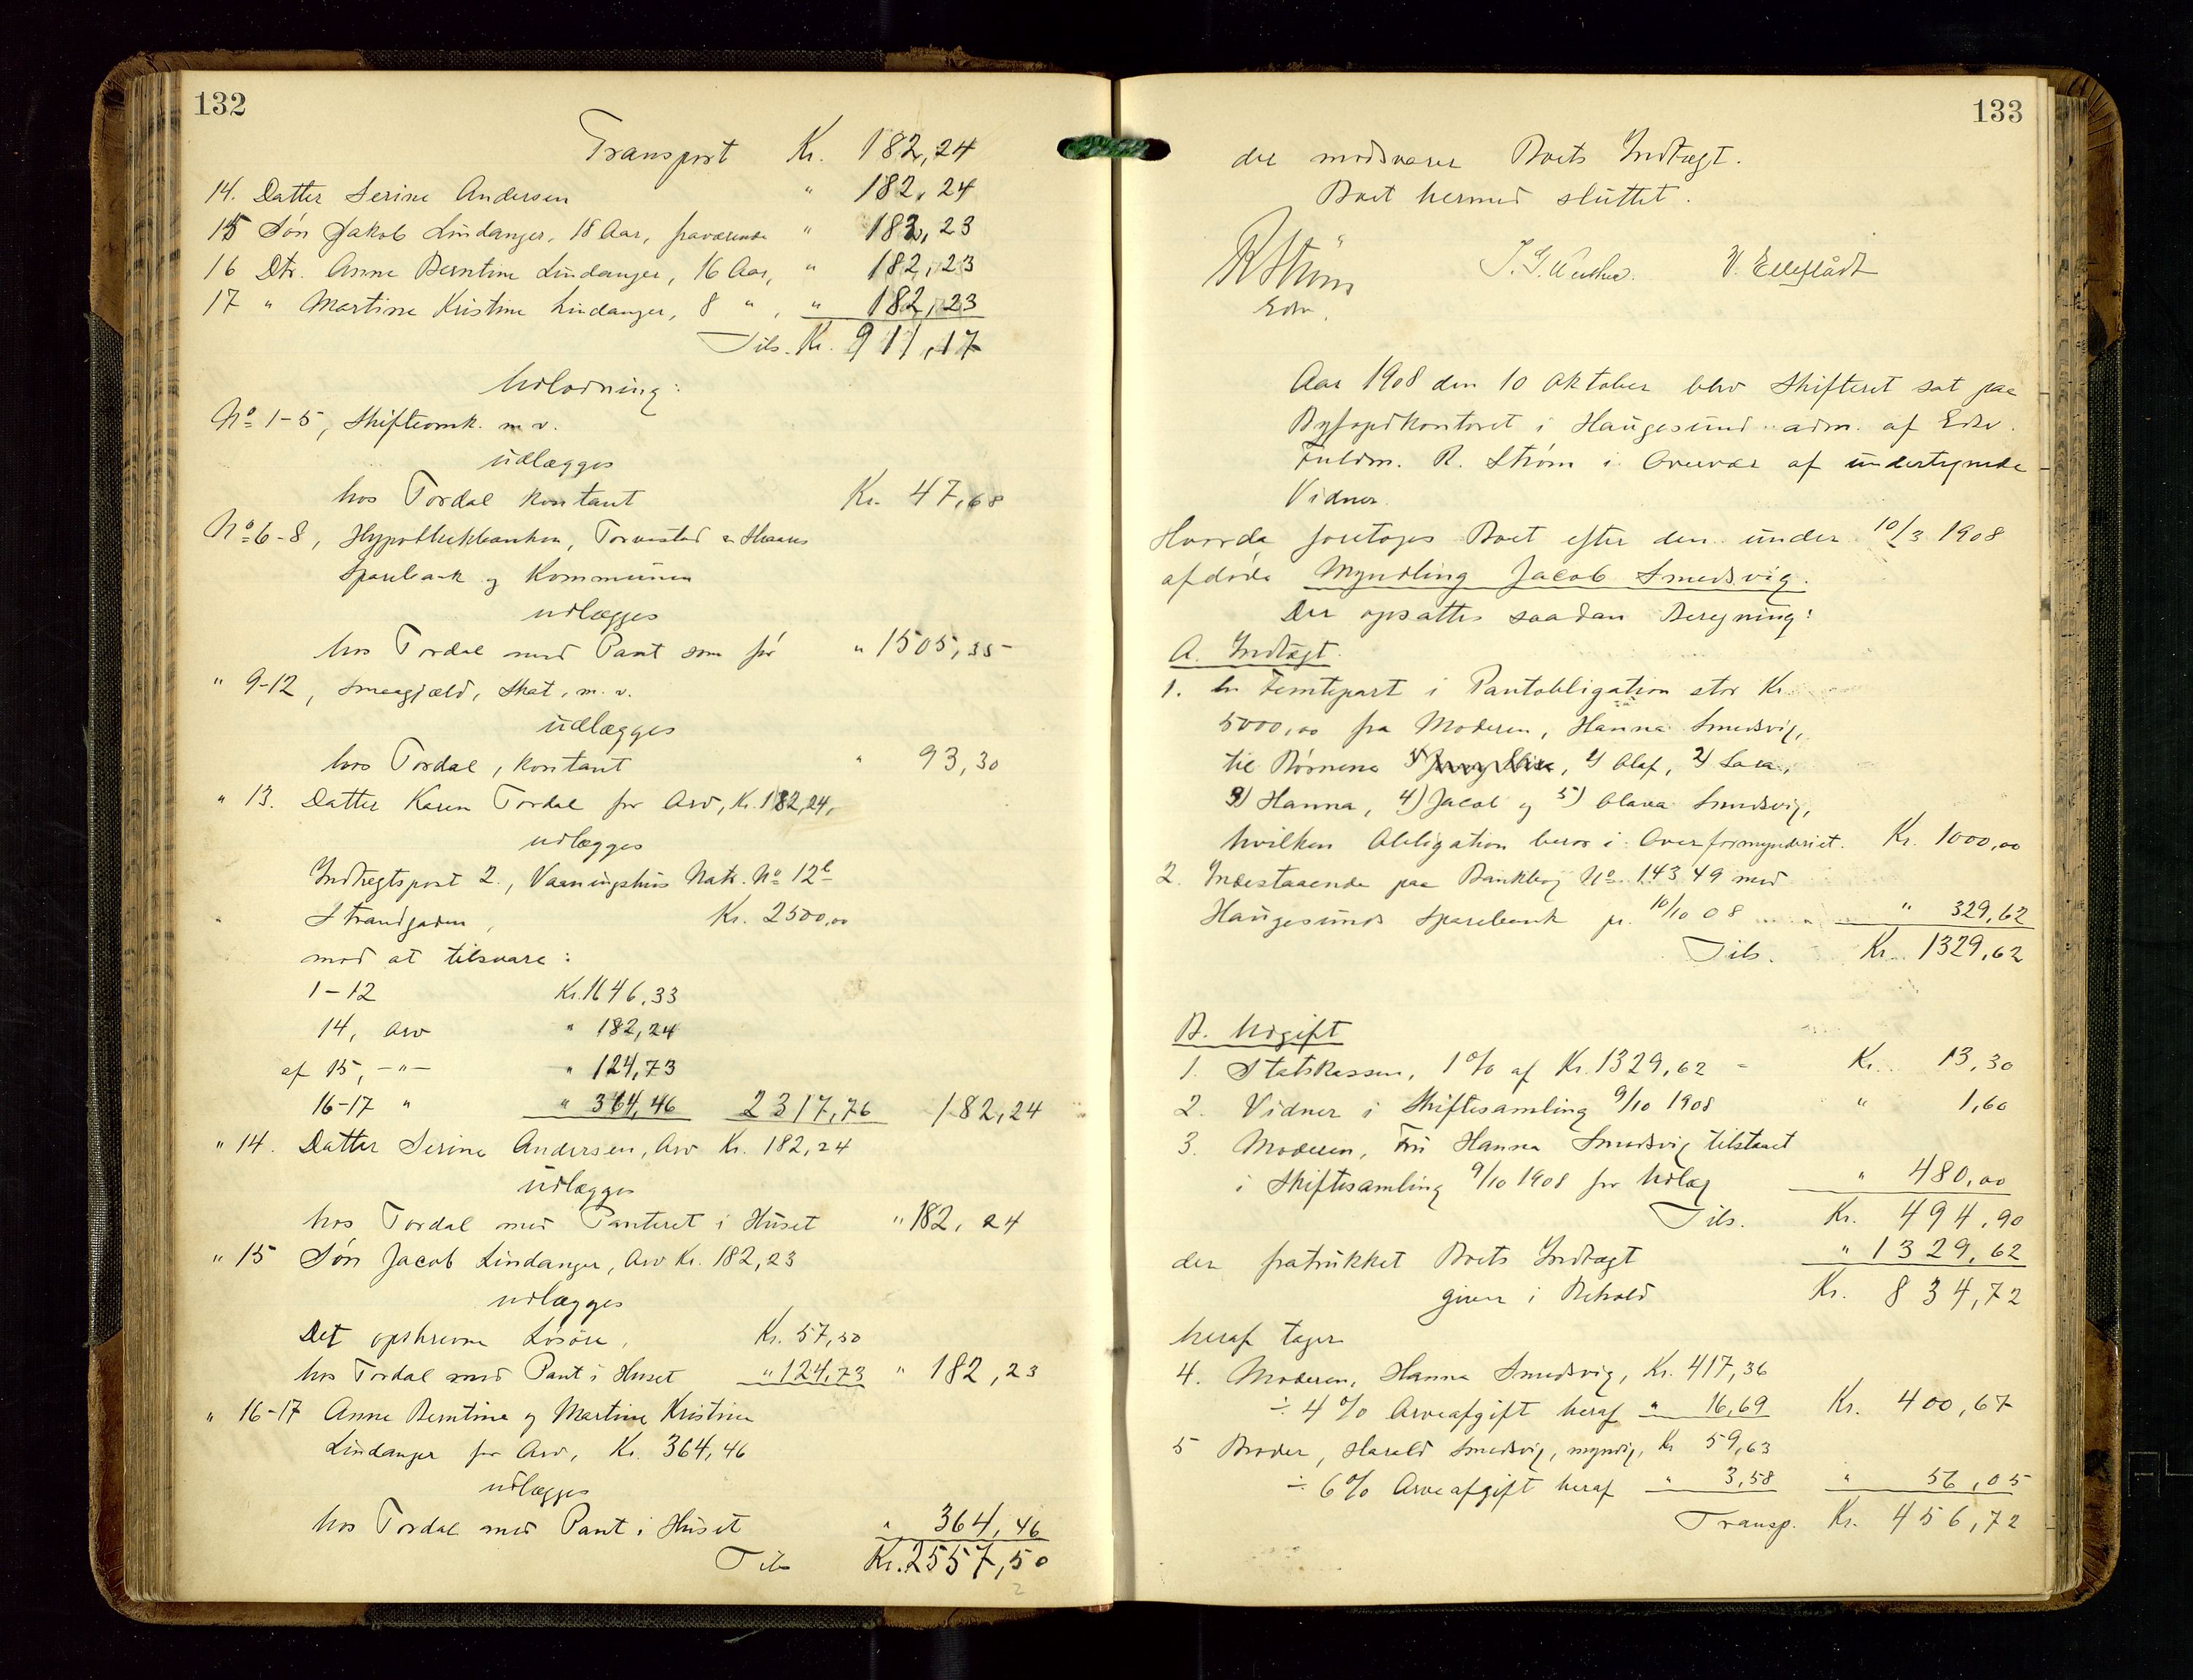 132
Transport Kr. 182,24
14. Datter Serine Andersen " 182,24
15 Søn Jakob Lindanger, 18 Aar, fraværende " 182,23
16 Dtr. Anne Berntine Lindanger, 16 Aar, " 182,23
17 " Martine Kristine Lindanger, 8 ", " 182,23
Tils. Kr. 911,17
Udlodning:
No 1-5, Skifteomk. m v.
udlægges
hos Tordal kontant Kr. 47,68
No 6-8, Hypothekbanken, Torvestad & Skaare
Sparebank og Kommunen
udlægges
hos Tordal med Pant som før " 1505,35
" 9-12, Smaagjæld, Skat, m. v.
udlægges
hos Tordal, kontant " 93,30
" 13. Datter Karen Tordal for Arv, Kr. 182,24,
udlægges
Indtægtspost 2, Vaaningshus Matr. No 12b
Strandgaden, Kr. 2500,00
mod at tilsvare:
1-12 Kr. 1646,33
14, Arv " 182,24
af 15, -"- " 124,73
16-17 " " 364,46 2317,76 182,24
" 14. Datter Serine Andersen, Arv Kr. 182,24
udlægges
hos Tordal med Panteret i Huset " 182,24
" 15 Søn Jacob Lindanger, Arv Kr. 182,23
udlægges
Det opskrevne Løsøre, Kr. 57,50
hos Tordal med Pant i Huset " 124,73 " 182,23
" 16-17 Anne Berntine og Martine Kristine
Lindanger for Arv, Kr. 364,46
udlægges
hos Tordal med Pant i Huset " 364,46
Tils Kr. 2557,50
133
der modsvarer Boets Indtægt.
Boet hermed sluttet.
R Strøm
Edsv.
Aar 1908 den 10 Oktober blev Skifteret sat paa
Byfogdkontoret i Haugesund adm. af Edsv.
Fuldm. R. Strøm i Overvær af undertegnede
Vidner.
Hvorda foretoges Boet efter den under 10/3 1908
afdøde Myndling Jacob Smedsvig.
Der opsattes saadan Beregning:
A. Indtægt.
1. En Femtepart i Pantobligation stor Kr.
5000,00 fra Moderen, Hanna Smedsvig,
til Børnene 1) Olaf, 2) Sara,
3) Hanna, 4) Jacob og 5) Olava Smedsvig,
hvilken Obligation beror i Overformynderiet. Kr. 1000,00
2. Indestaaende paa Bankbog No 14349 med
Haugesunds Sparebank pr. 10/10 08 " 329,62
Tils. Kr. 1329,62
B. Udgift
1. Statskassen, 1% af Kr. 1329,62 - Kr. 13,30
2. Vidner i Skiftesamling 9/10 1908 " 1,60
3. Moderen, Fru Hanna Smedsvig tilstaaet
i Skiftesamling 9/10 1908 for Udlæg " 480,00
Tils. Kr. 494,90
der fratrukket Boets Indtægt " 1329,62
giver i Behold Kr. 834,72
heraf tager
4. Moderen, Hanna Smedsvig, Kr. 417,36
÷ 4% Arveafgift heraf " 16,69 Kr. 400,67
5 Broder, Harald Smedsvig, myndig, Kr 59,63
÷ 6% Arveafgift heraf " 3,58 " 56,05
Transp. Kr. 456,72